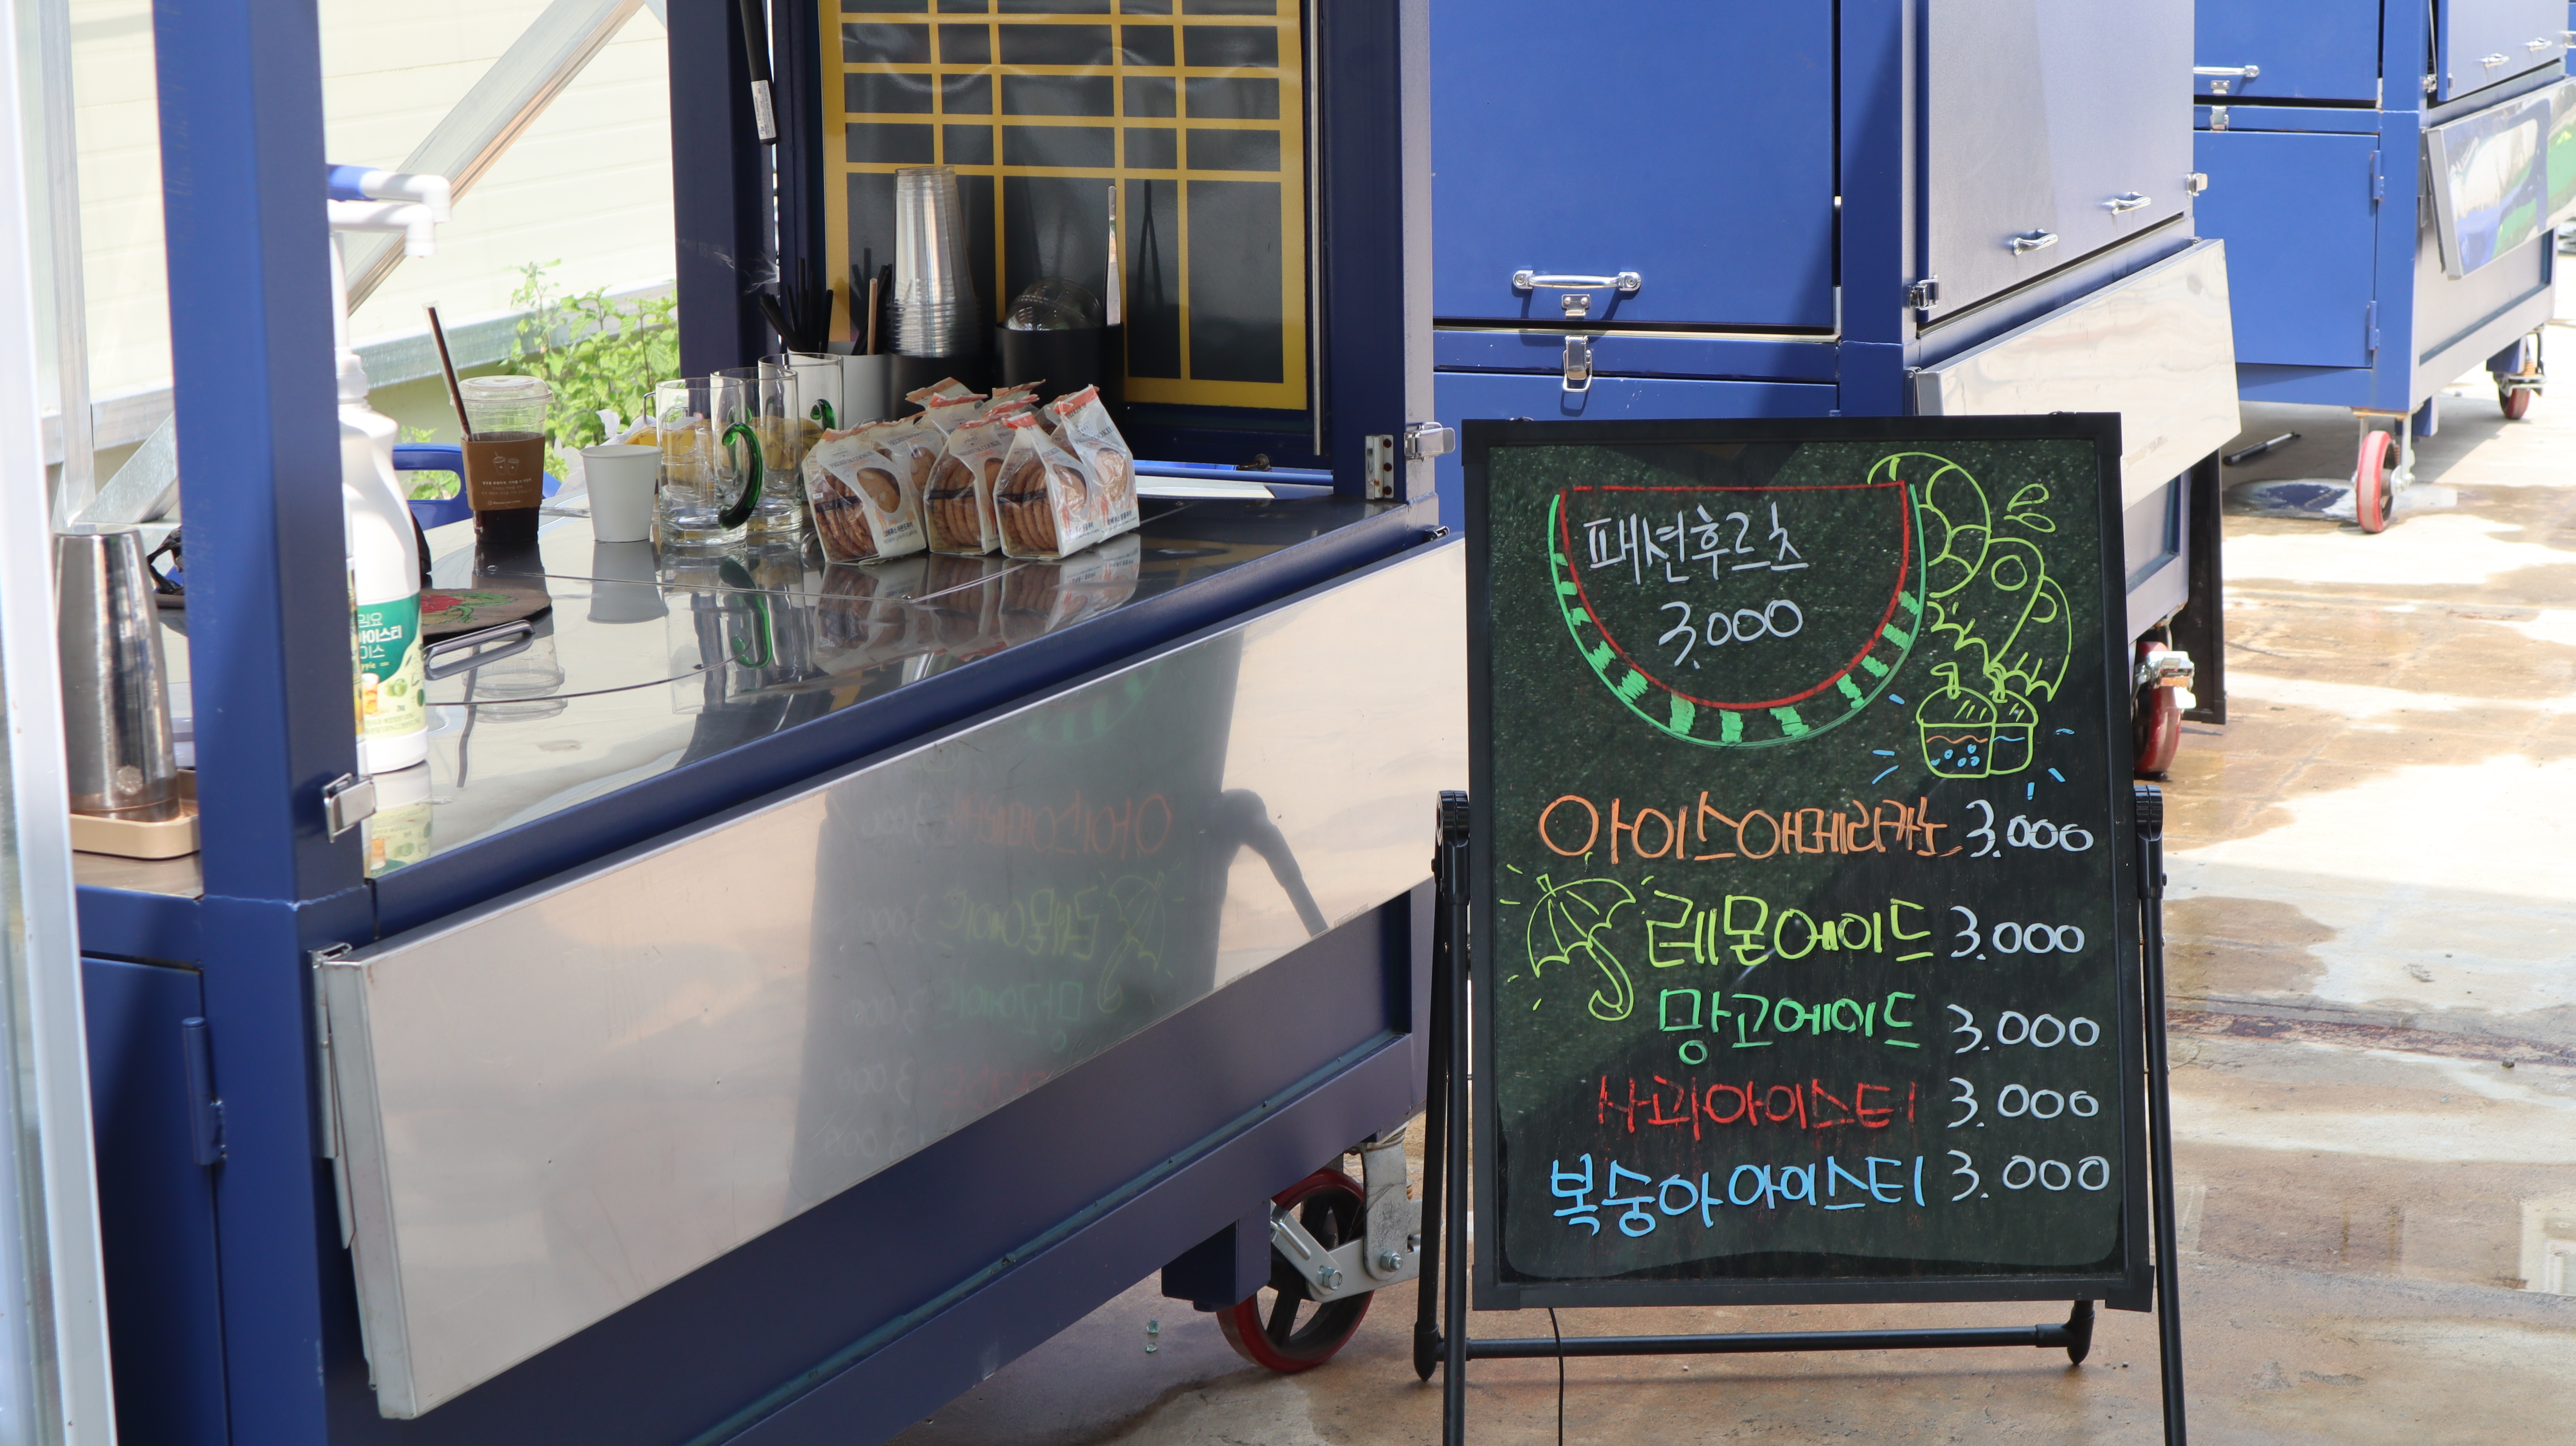 패션후르츠
3.000
아이스아메리카노 3.000
레몬에이드 3.000
망고에이드 3.000
사과아이스티 3.000
복숭아아이스티 3.000
아이스티